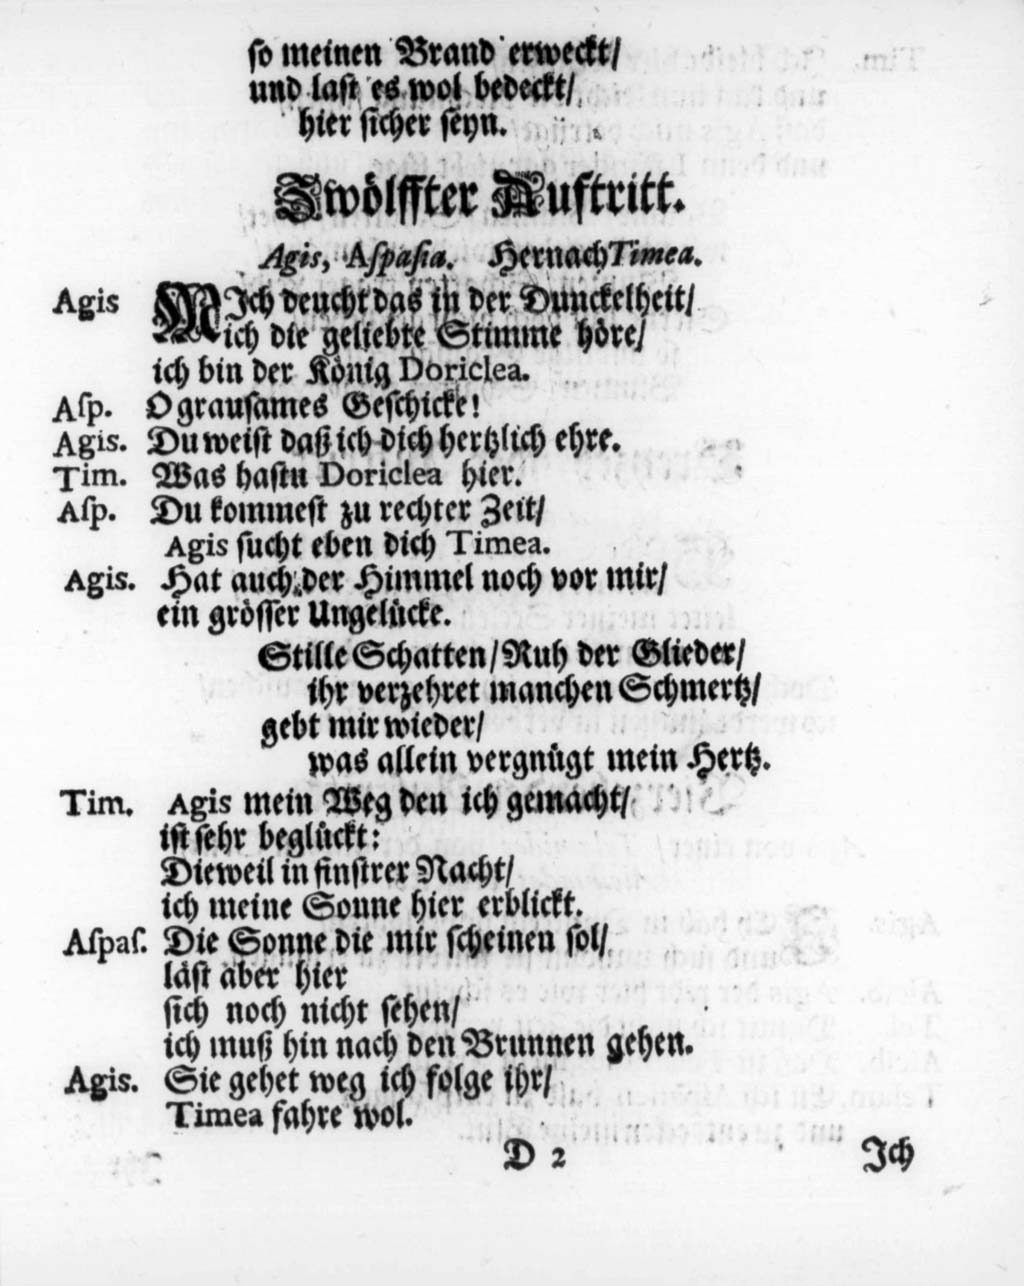 so meinen Brand erweckt/
und last es wol bedeckt/
hier sicher seyn.
Zwölffter Auftritt.
Agis, Aſpaſia. Hernach Timea.
Agis MIch deucht das in der Dunckelheit/
ich die geliebte Stimme höre/
ich bin der König Doriclea.
Aſp. O grausames Geschicke!
Agis. Du weist daß ich dich hertzlich ehre.
Tim. Was hastu Doriclea hier.
Aſp. Du kommest zu rechter Zeit/
Agis sucht eben dich Timea.
Agis. Hat auch der Himmel noch vor mir/
ein grösser Ungelücke.
Stille Schatten/ Ruh der Glieder/
ihr verzehret manchen Schmertz/
gebt mir wieder/
was allein vergnügt mein Hertz.
Tim. Agis mein Weg den ich gemacht/
ist sehr beglückt:
Dieweil in finstrer Nacht/
ich meine Sonne hier erblickt.
Aſpaſ. Die Sonne die mir scheinen sol/
läst aber hier
sich noch nicht sehen/
ich muß hin nach den Brunnen gehen.
Agis. Sie gehet weg ich folge ihr/
Timea fahre wol.
D 2 Ich